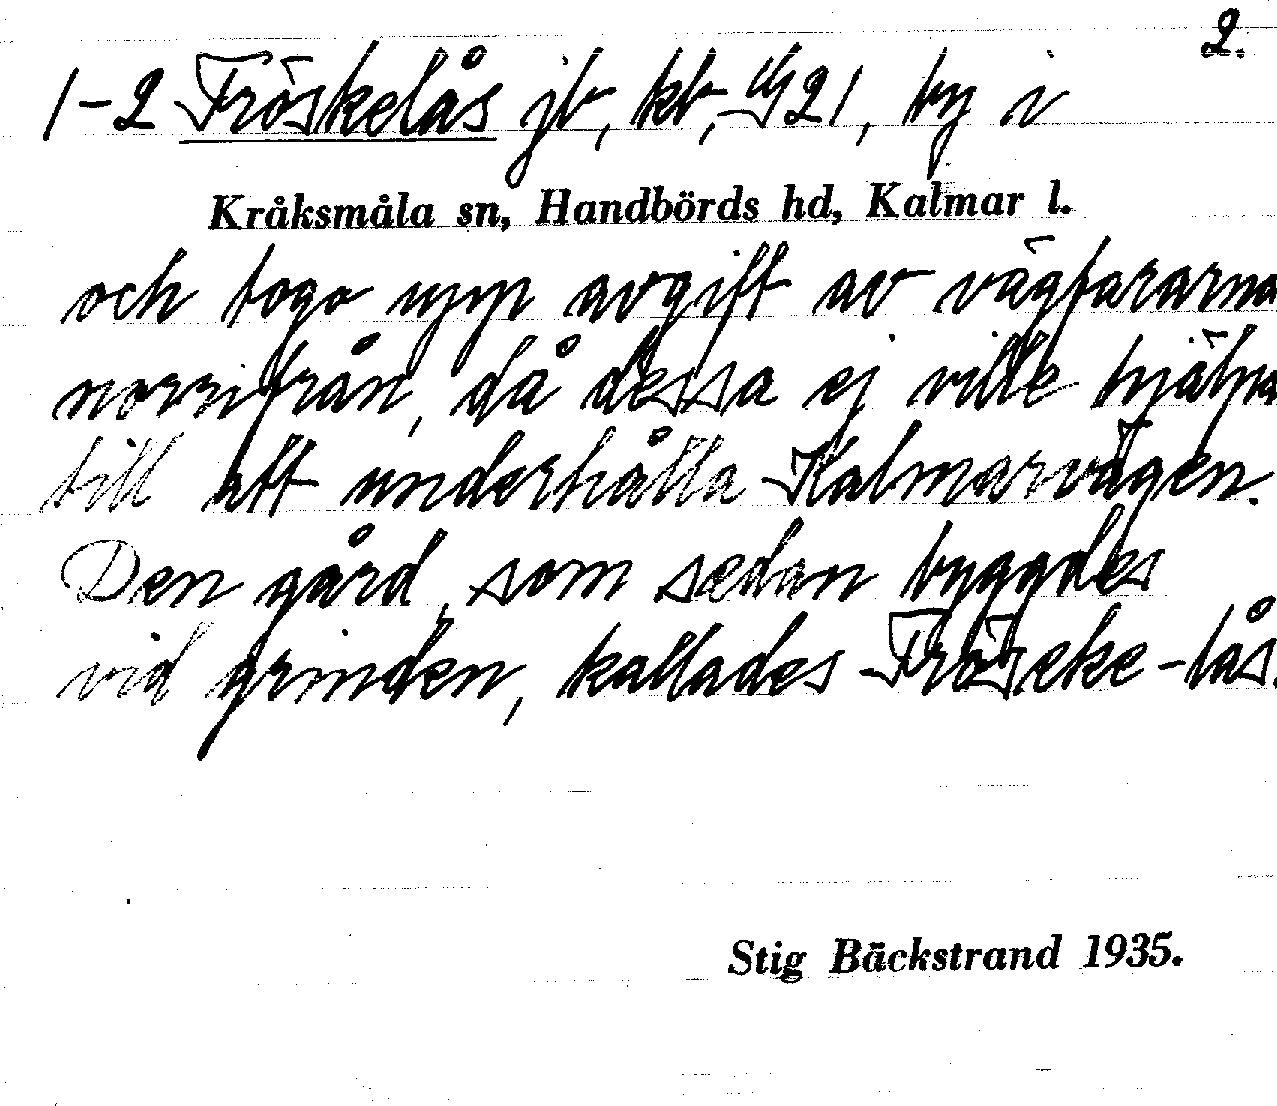 2.
1-2 Fröskelås jb, kb, 1/1 21, by i
Kråksmåla sn, Handbörds hd, Kalmar l.
och togo upp avgift av vägfararna
norrifrån, då dessa ej ville hjälpa
till att underhålla Kalmarvägen.
Den gård, som sedan byggdes
vid grinden, kallades Fröseke-lås.
Stig Bäckstrand 1935.